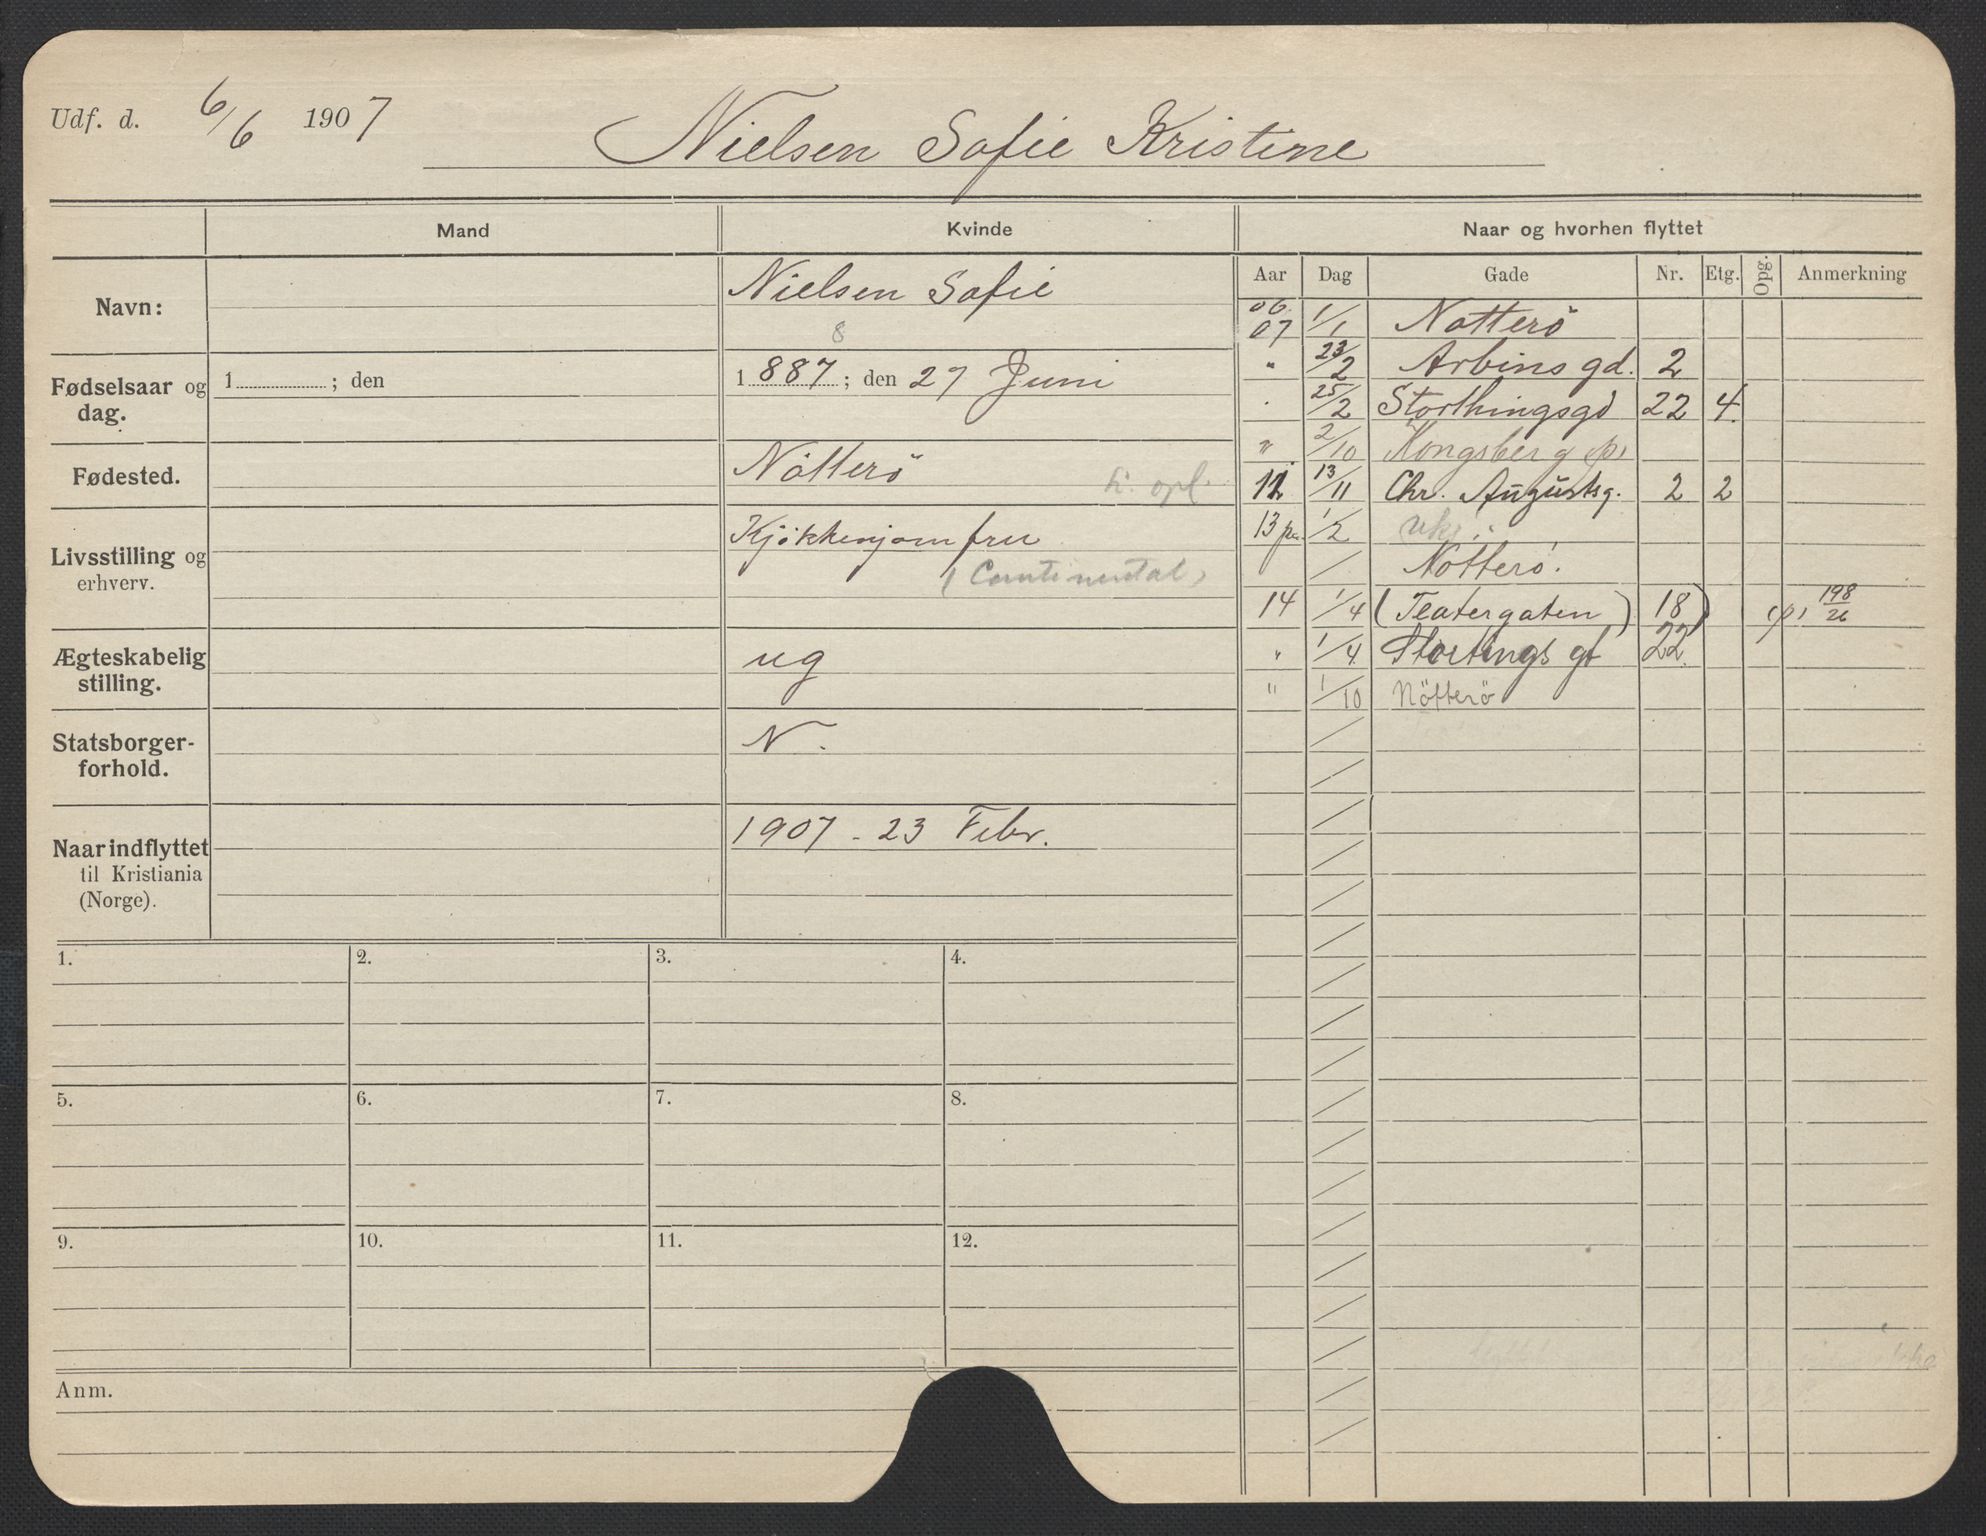 Udf. d. 6/6 1907
Nielsen Sofie Kristine
Mand Kvinde Naar og hvorhen flyttet
Aar Dag Gade Nr. Etg. Opg. Anmerkning
Navn:
Nielsen Sofie
8
Fødselsaar og dag.
1 ; den
1 887 ; den 27 Juni
Fødested.
Nötterö
opl.
Livsstilling og erhverv.
Kjökkenjomfru
(Continental)
Ægteskabelig stilling.
ug
Statsborgerforhold.
N.
Naar indflyttet til Kristiania (Norge).
1907 - 23 Febr.
06.
07 1/1 Notterö
" 23/2 Arbinsgd. 2
. 25/2 Storthingsgd 22 4.
" 2/10 Kongsberg (p)
12 13/11 Chr. Augustsg. 2 2
13 1/2 ukj.
/ Nötterö.
14 1/4 (Teatergaten 18) (p) 198/26
" 1/4 Stortingsgt 22.
" 1/10 Nötterö
1. 2. 3. 4.
5. 6. 7. 8.
9. 10. 11. 12.
Anm.